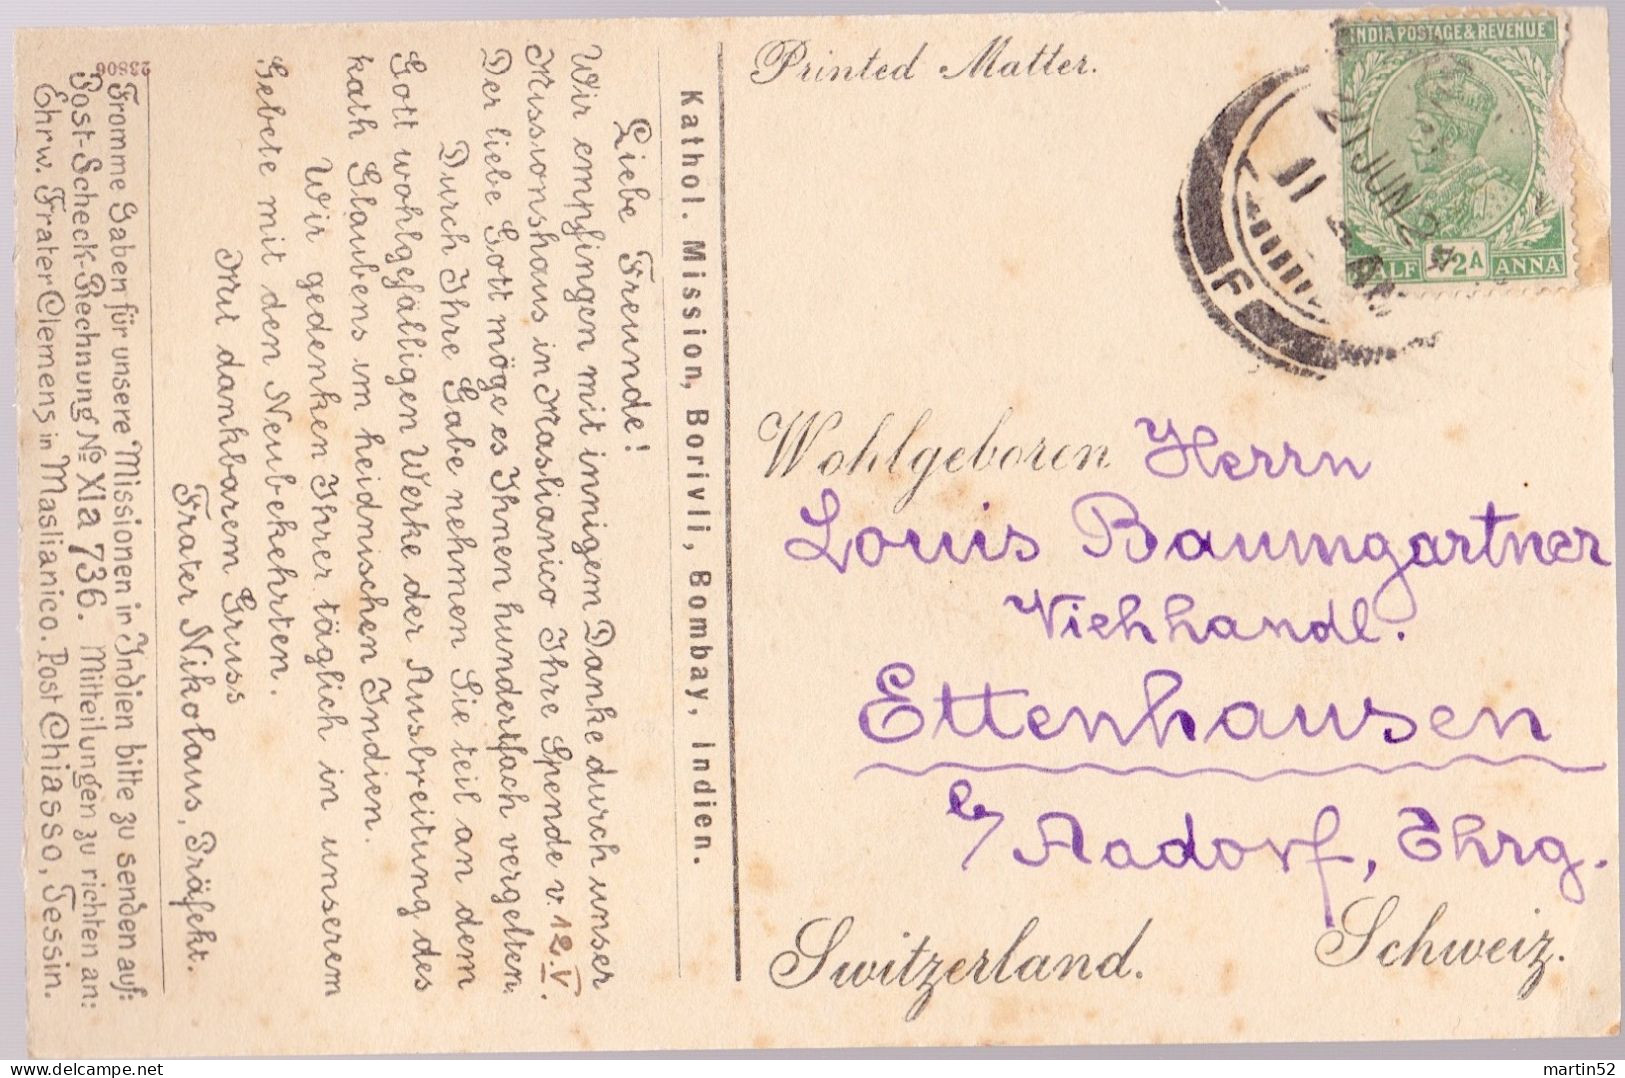 Kathol. Mission, Borivli, Bombay, Indien.
Liebe Freunde!
Wir empfingen mit innigem Danke durch unser
Missionshaus in Maslianico Ihre Spende v. 12. V.
Der liebe Gott möge es Ihnen hundertfach vergelten.
Durch Ihre Gabe nehmen Sie teil an dem
Gott wohlgefälligen Werke der Ausbreitung des
kath Glaubens im heidnischen Indien.
Wir gedenken Ihrer täglich in unserem
Gebete mit den Neubekehrten.
Mit dankbarem Gruss
Frater Nikolaus, Präfekt.
Fromme Gaben für unsere Missionen in Indien bitte zu senden auf:
Post-Scheck-Rechnung № XIa 736. Mitteilungen zu richten an:
Ehrw. Frater Clemens in Maslianico. Post Chiasso, Tessin.
23806
Printed Matter.
INDIA POSTAGE & REVENUE
HALF ½A ANNA
21 JUN 24
11
F
Wohlgeboren Herrn
Louis Baumgartner
Viehhandl.
Ettenhausen
b/ Aadorf, Thrg.
Switzerland. Schweiz.
martin52